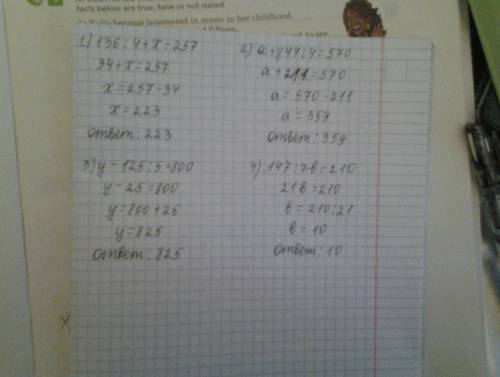 facts below are true, false or not stated.
became interested in music in her childhood.
1) 136:4+x=257
34+x=257
x=257-34
x=223
ответ: 223
2) a+844:4=570
a+211=570
a=570-211
a=359
ответ: 359
3) y-125:5=800
y-25=800
y=800+25
y=825
ответ: 825
4) 147:7·b=210
21b=210
b=210:21
b=10
ответ: 10